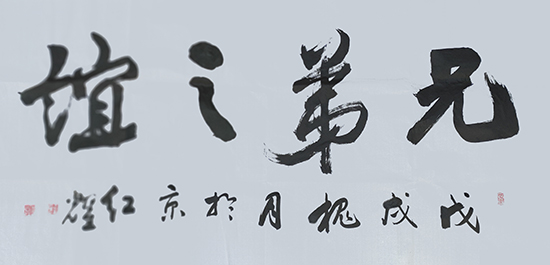 兄弟之谊
戊戌槐月於京红